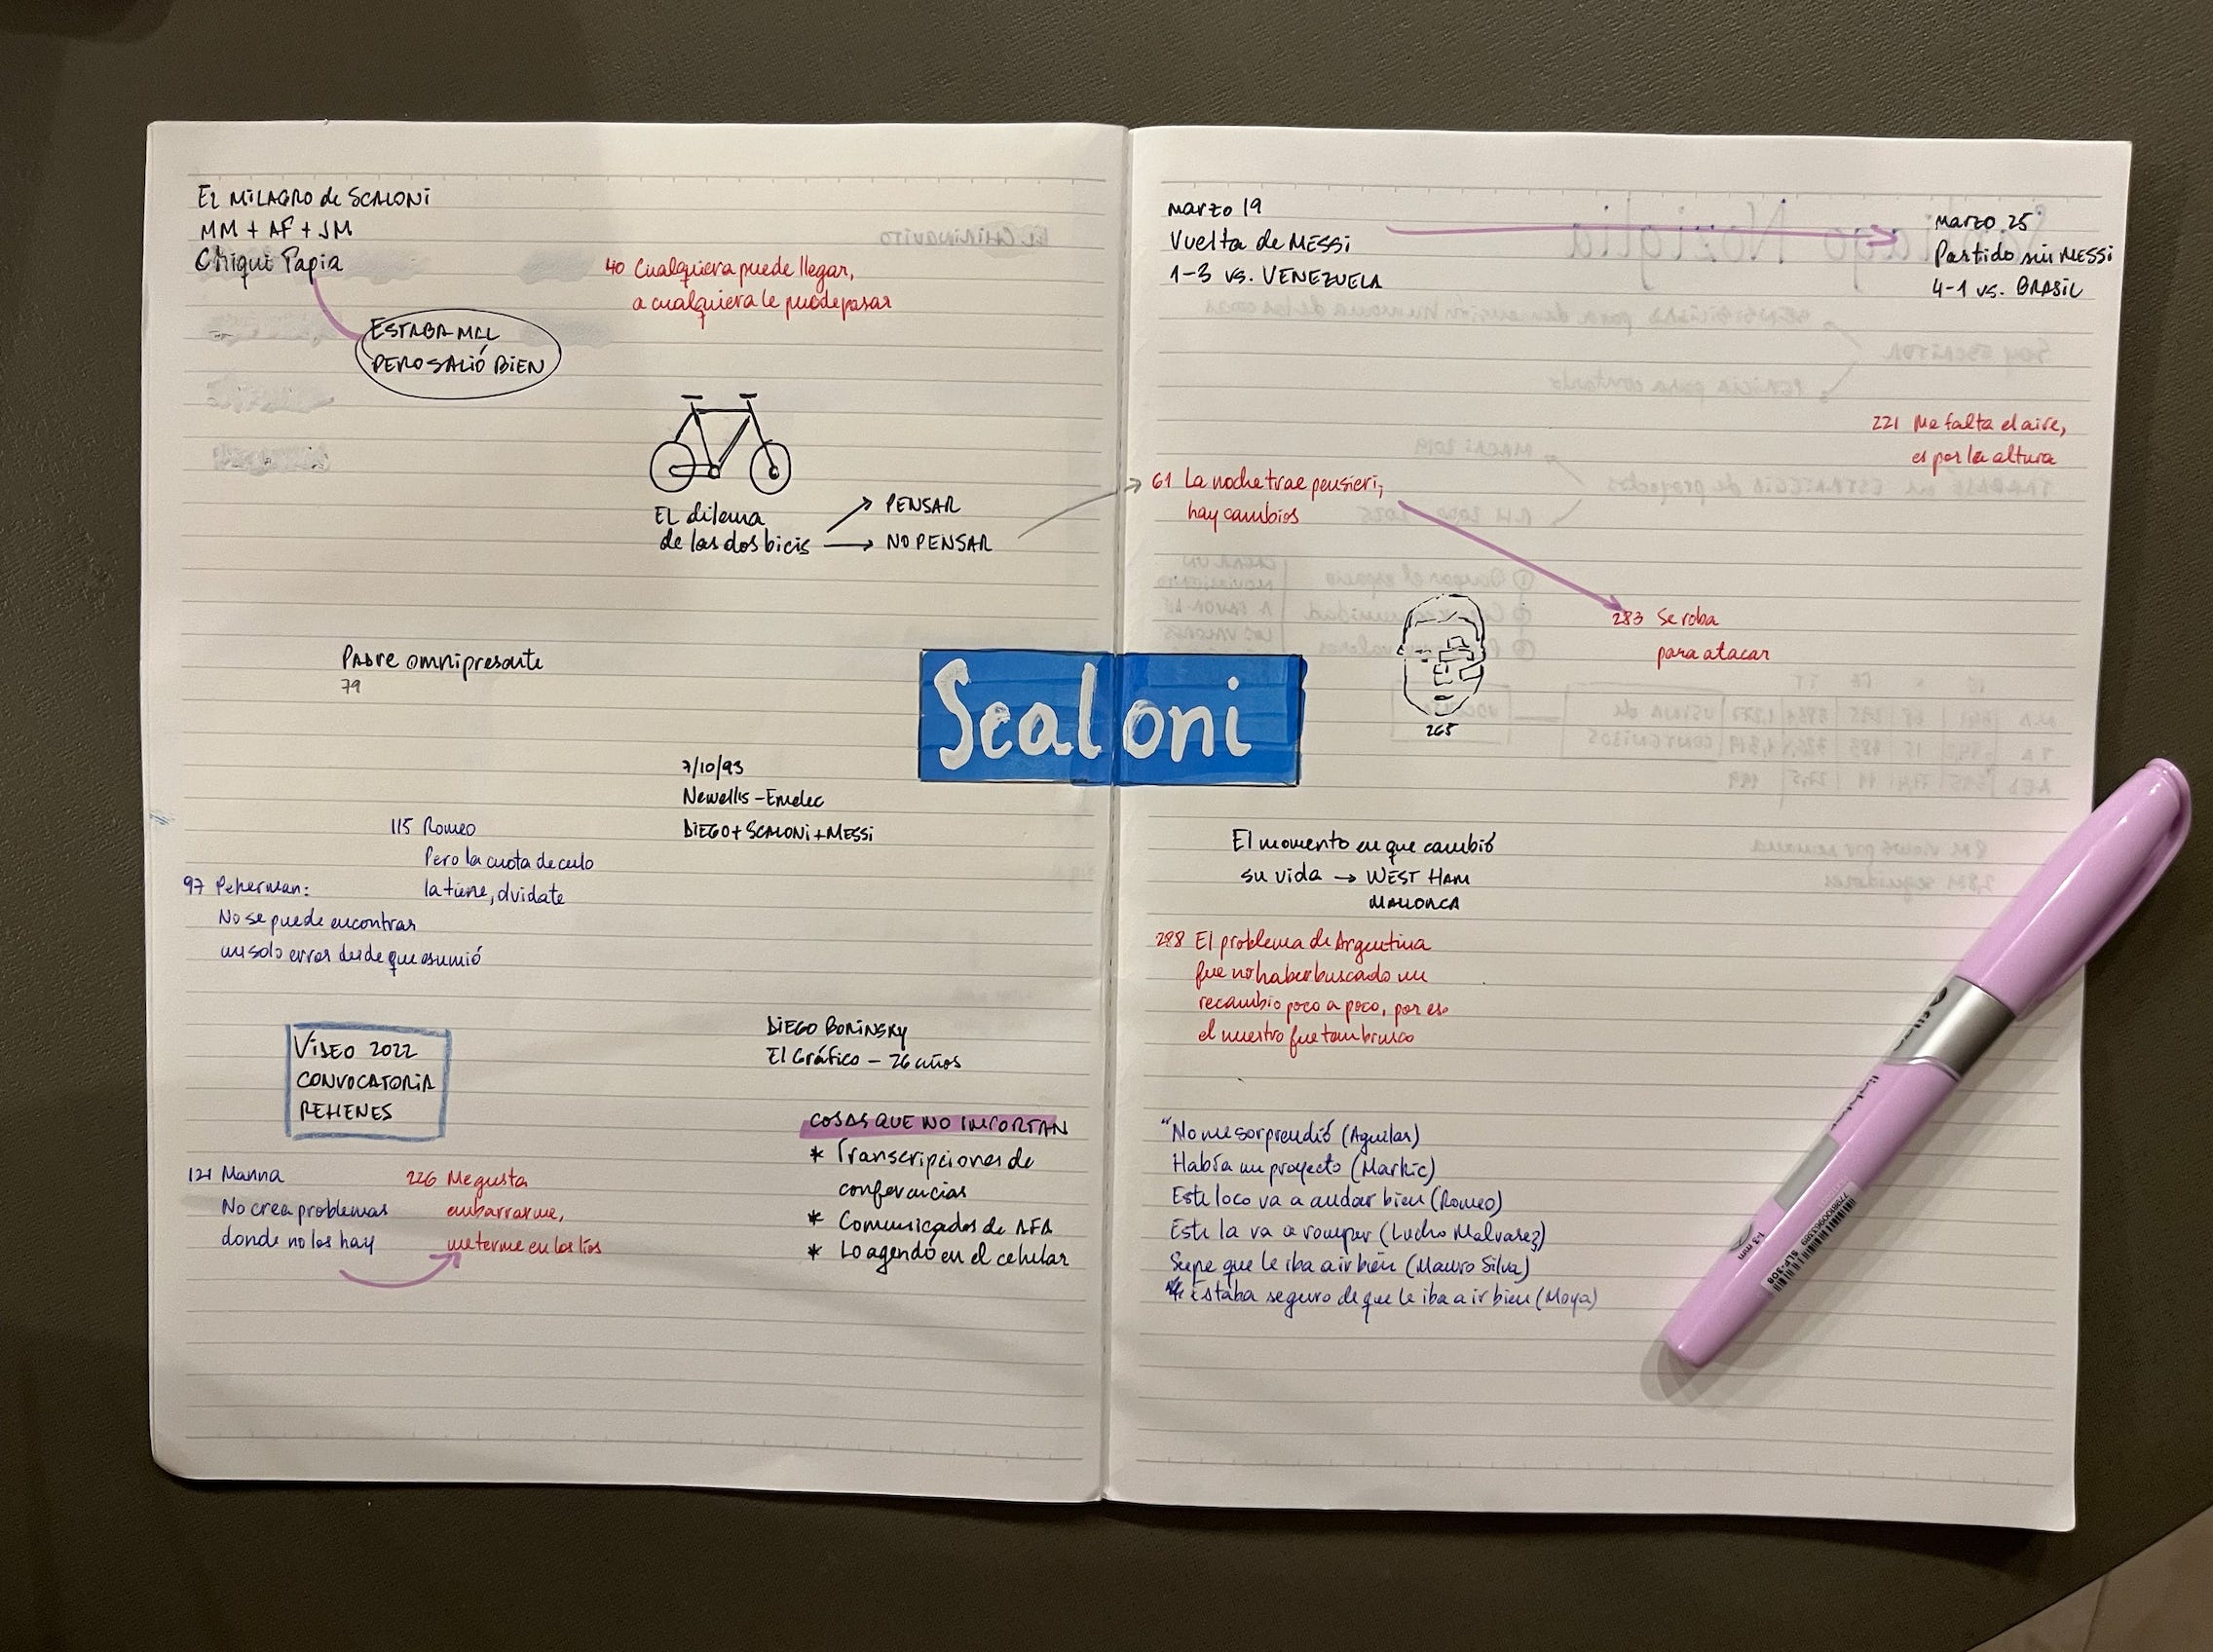 EL MILAGRO de SCALONI
MM + AF + JM
Chiqui Tapia
ESTABA MAL
PERO SALIÓ BIEN
40 Cualquiera puede llegar,
a cualquiera le puede pasar
EL dilema
de las dos bicis
PENSAR
NO PENSAR
Padre omnipresente
79
7/10/93
Newell's - Emelec
DIEGO + SCALONI + MESSI
115 Romeo
Pero la cuota de culo
la tiene, olvidate
97 Pekerman:
No se puede encontrar
un solo error desde que asumió
VIDEO 2022
CONVOCATORIA
REHENES
DIEGO BORINSKY
El Gráfico - 26 años
COSAS QUE NO IMPORTAN
* Transcripciones de
conferencias
* Comunicados de AFA
* Lo agendó en el celular
121 Manna
No crea problemas
donde no los hay
226 Me gusta
embarrarme,
meterme en los líos
Scaloni
marzo 19
Vuelta de MESSI
1-3 vs. VENEZUELA
marzo 25
Partido sin MESSI
4-1 vs. BRASIL
221 Me falta el aire,
es por la altura
61 La noche trae pensieri,
hay cambios
283 Se roba
para atacar
265
El momento en que cambió
su vida → WEST HAM
MALLORCA
288 El problema de Argentina
fue no haber buscado un
recambio poco a poco, por eso
el nuestro fue tan brusco
"No me sorprendió (Aguilar)
Había un proyecto (Markic)
Este loco va a andar bien (Romeo)
Este la va a romper (Lucho Malvarez)
Supe que le iba a ir bien (Mauro Silva)
Estaba seguro de que le iba a ir bien (Moya)
filgo
1-3 mm
SLP-308